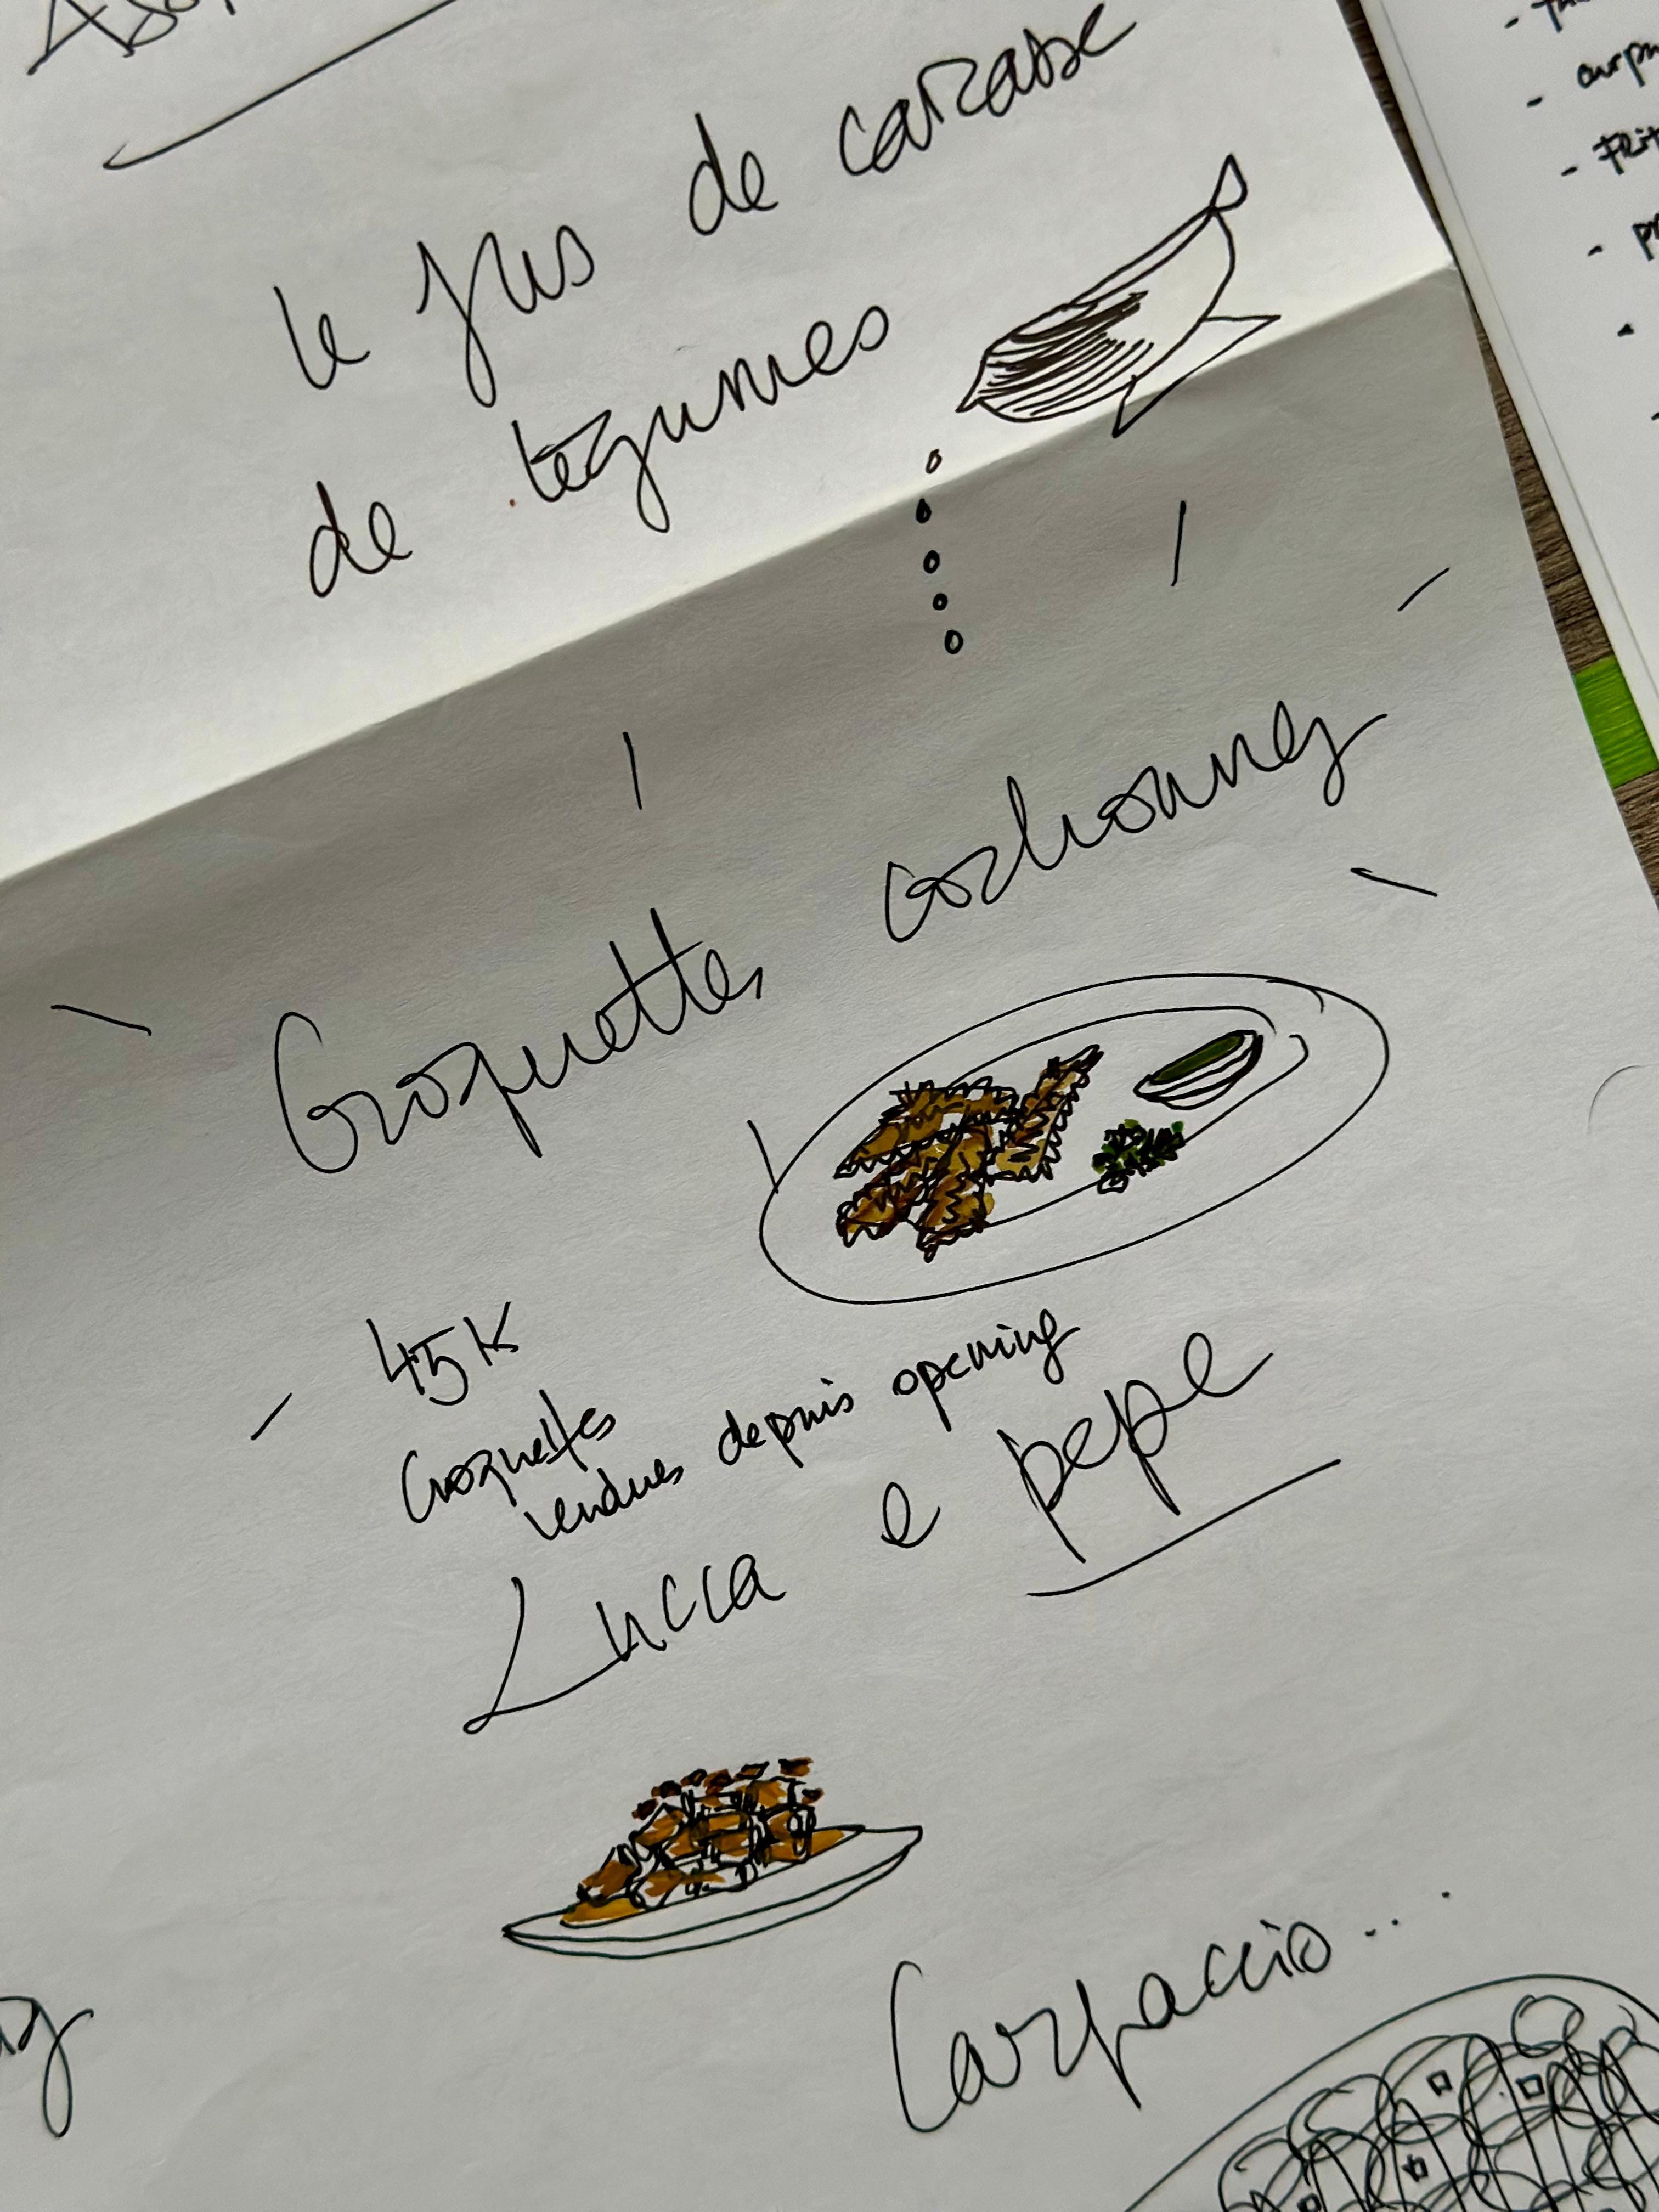 le jus de carcasse
de légumes
Croquettes cochonnes
45K
Croquettes
vendues depuis opening
Lucca e pepe
Carpaccio...